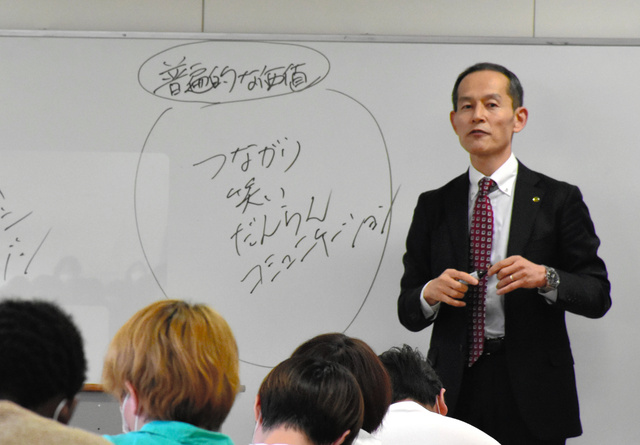 普遍的な価値
つながり
笑い
だんらん
コミュニケーション